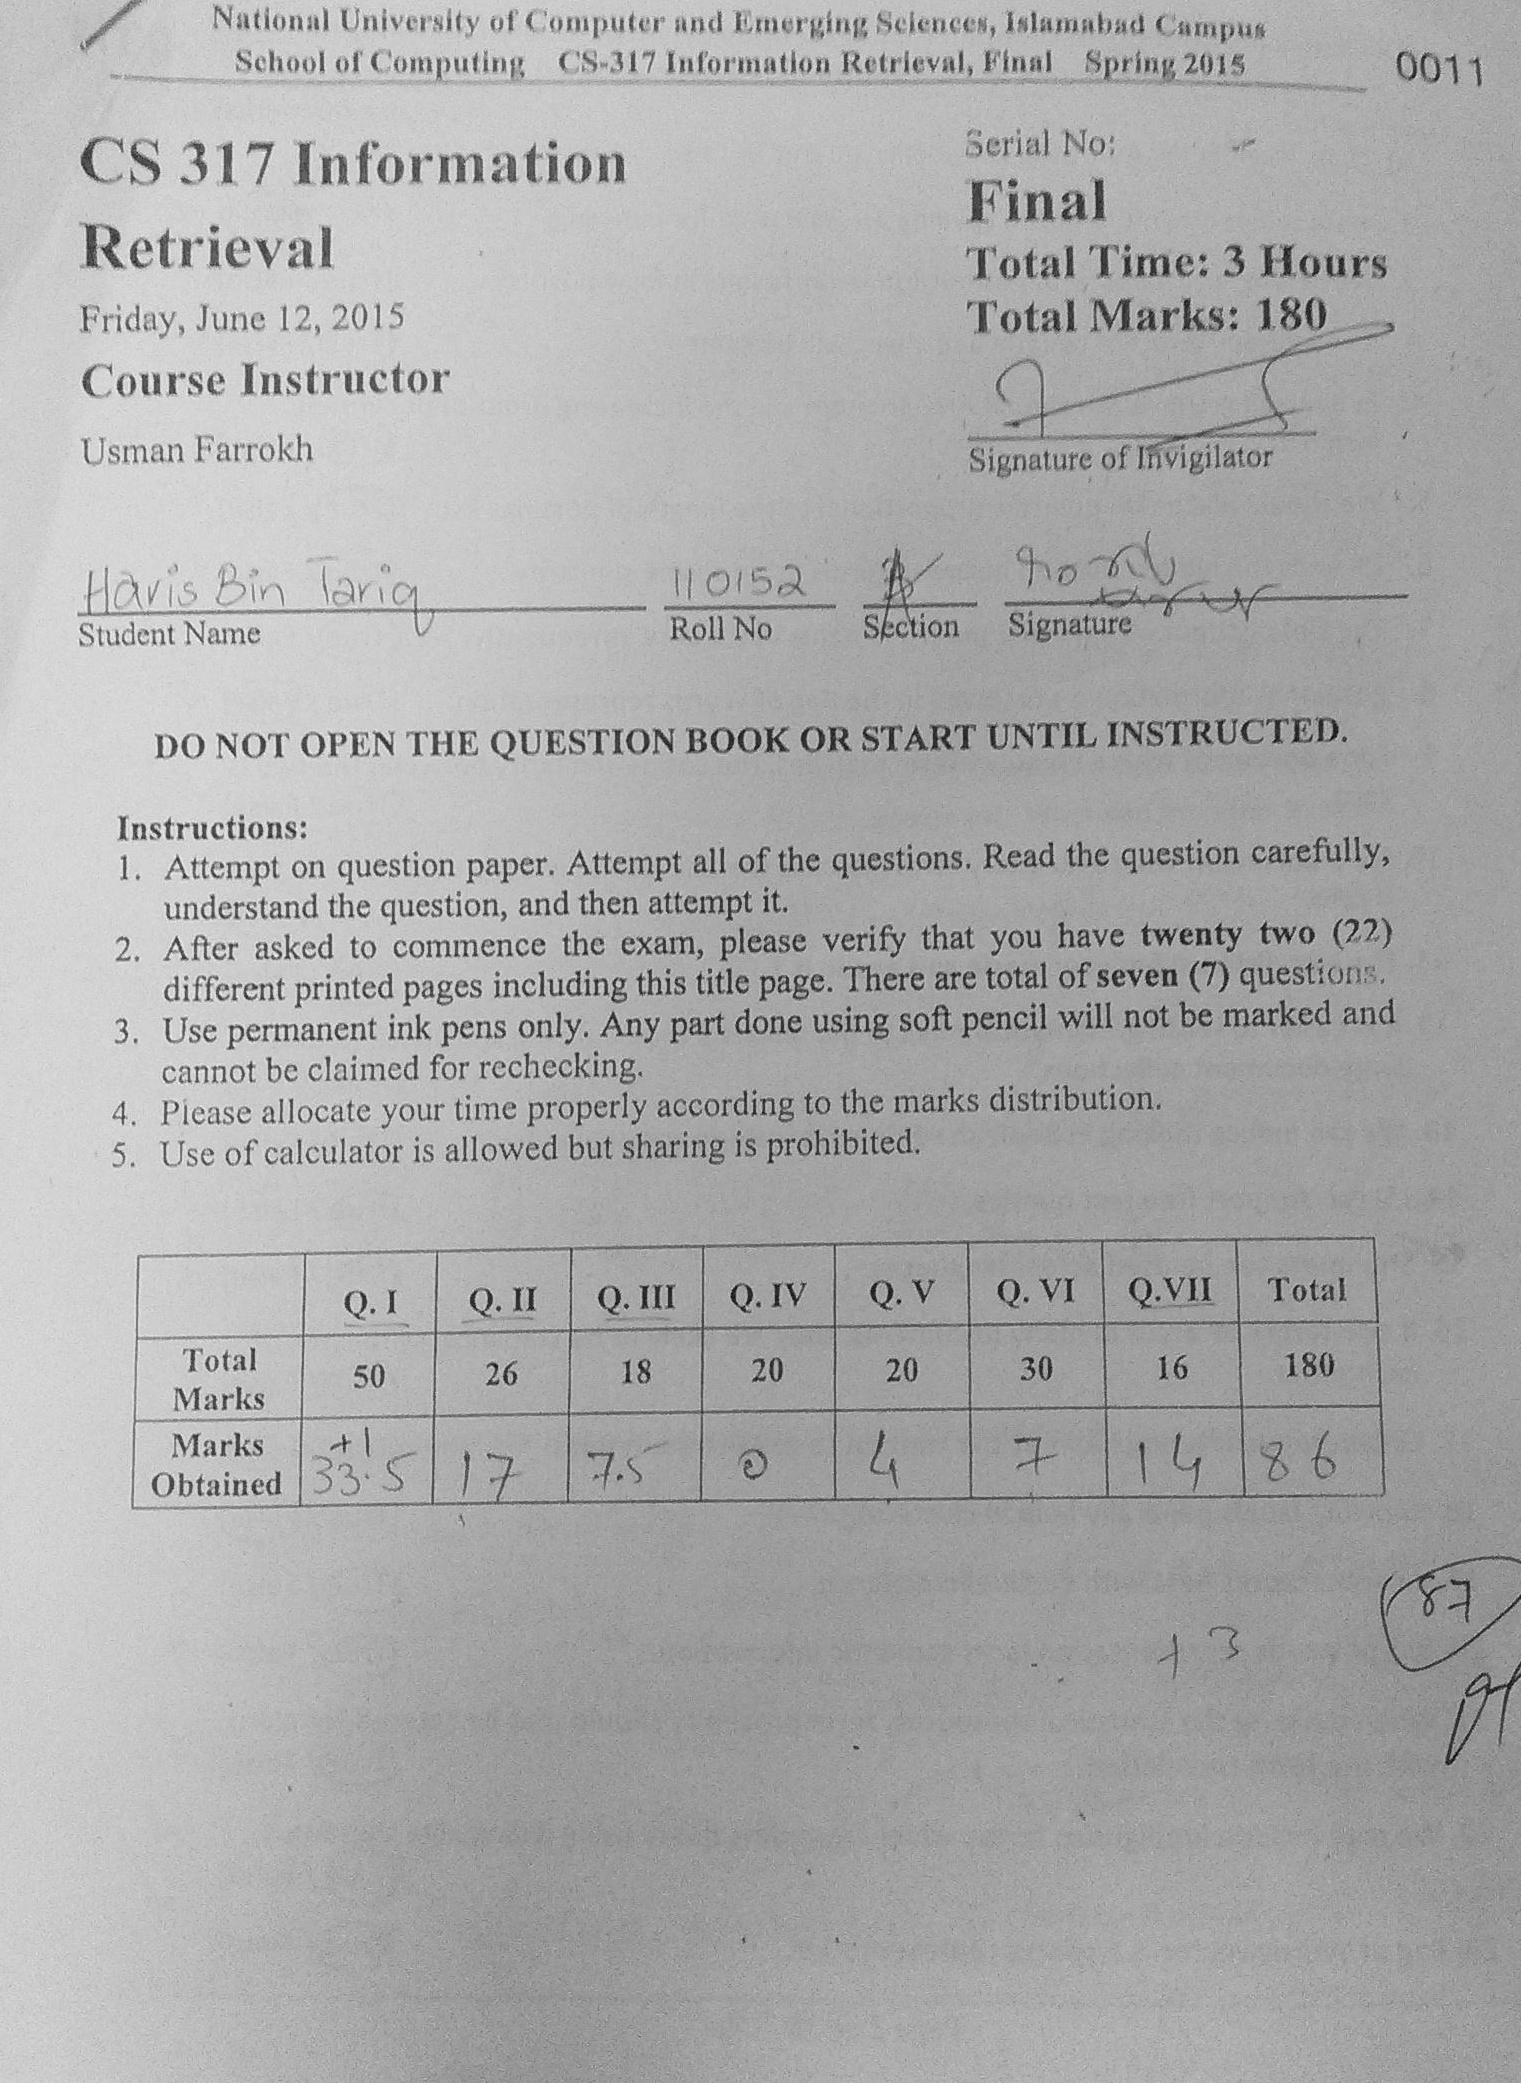 National University of Computer and Emerging Sciences, Islamabad Campus
School of Computing CS-317 Information Retrieval, Final Spring 2015
0011
CS 317 Information
Retrieval
Friday, June 12, 2015
Course Instructor
Usman Farrokh
Serial No:
Final
Total Time: 3 Hours
Total Marks: 180
Signature of Invigilator
Haris Bin Tariq 110152
Student Name Roll No Section Signature
DO NOT OPEN THE QUESTION BOOK OR START UNTIL INSTRUCTED.
Instructions:
1. Attempt on question paper. Attempt all of the questions. Read the question carefully,
understand the question, and then attempt it.
2. After asked to commence the exam, please verify that you have twenty two (22)
different printed pages including this title page. There are total of seven (7) questions.
3. Use permanent ink pens only. Any part done using soft pencil will not be marked and
cannot be claimed for rechecking.
4. Please allocate your time properly according to the marks distribution.
5. Use of calculator is allowed but sharing is prohibited.
Q. I Q. II Q. III Q. IV Q. V Q. VI Q.VII Total
Total
Marks
50 26 18 20 20 30 16 180
Marks
Obtained
+1
33.5 17 7.5 0 4 7 14 86
87
+3